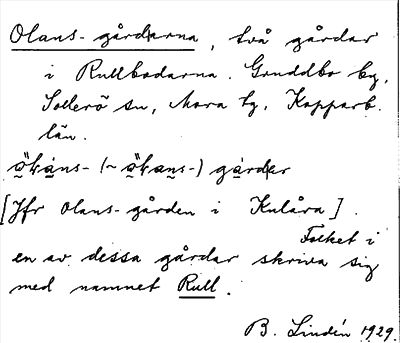 Olans-gårdarna, två gårdar
i Rullbodarna. Gruddbo by,
Sollerö sn, Mora tg. Kopparb.
län.
[Jfr Olans-gården i Kulåra].
Folket i
en av dessa gårdar skriva sig
med namnet Rull.
B. Lindén 1929.